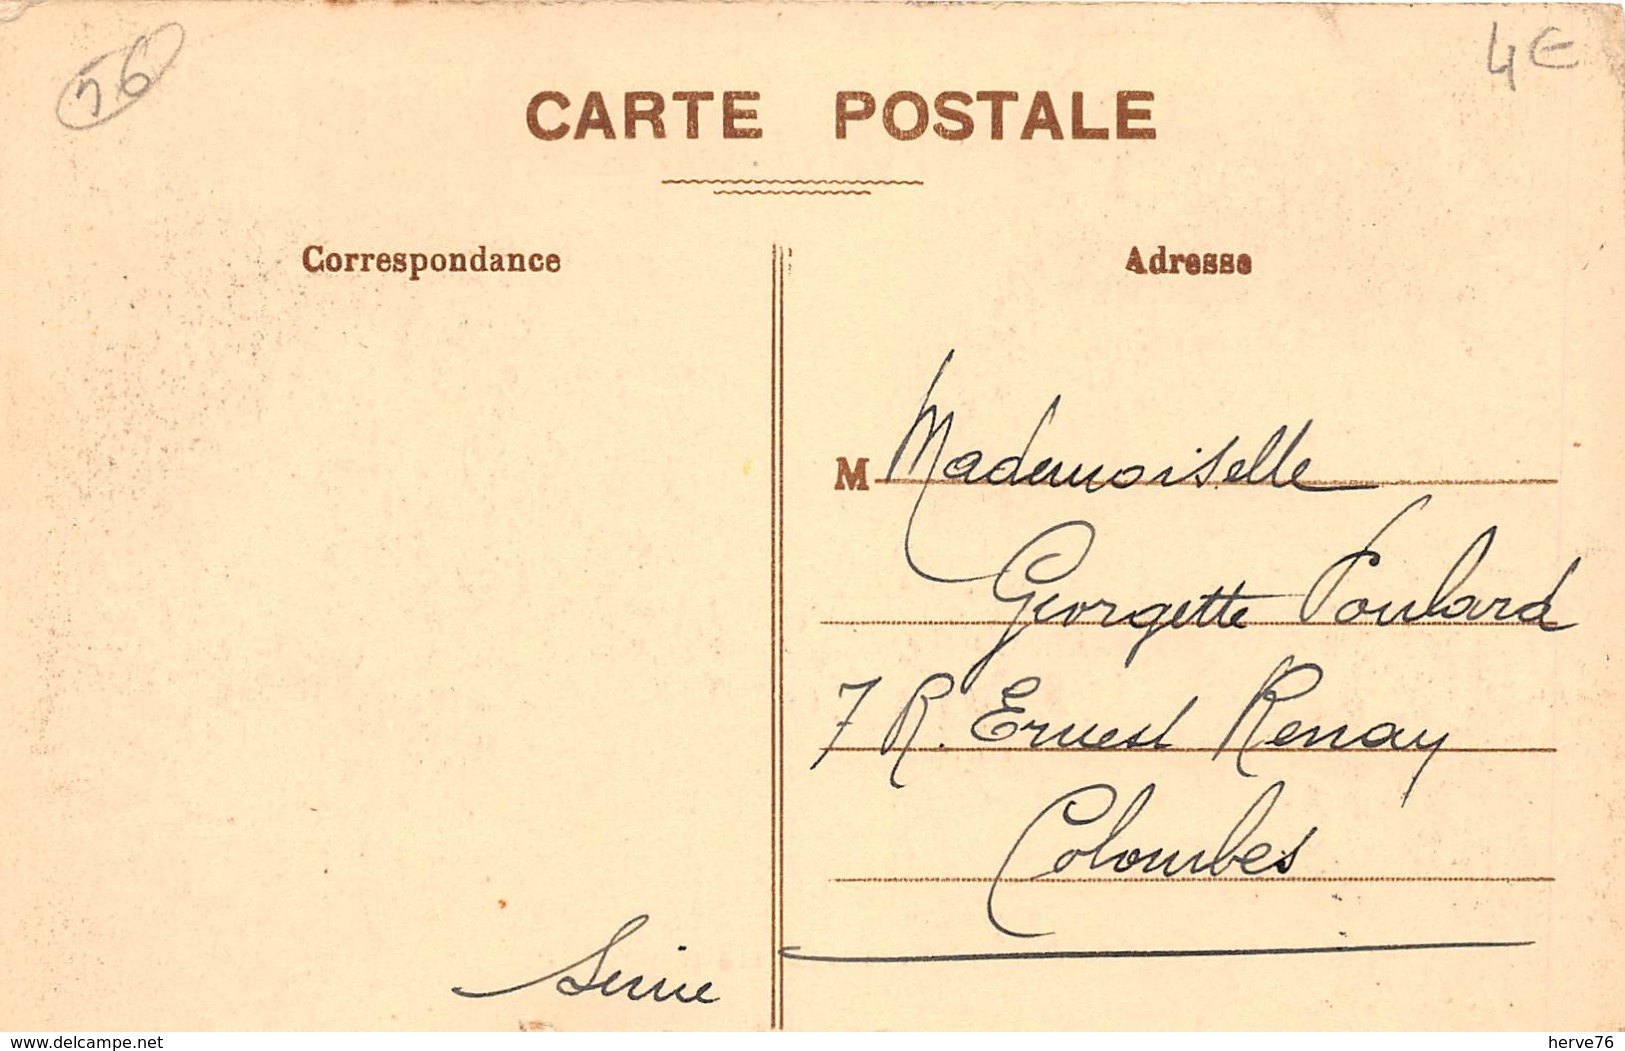 56
4€
CARTE POSTALE
Correspondance
Adresse
M Mademoiselle
Georgette Poulard
7 R. Ernest Renay
Colombes
www.delcampe.net
herve76